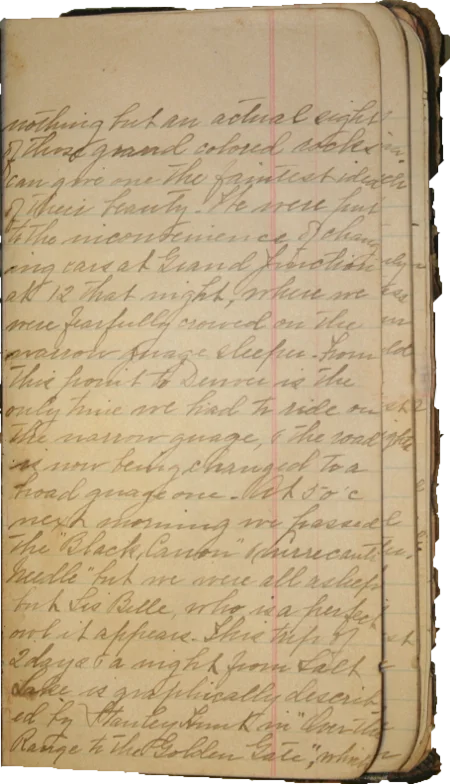 nothing but an actual sight
of those grand colored rocks
can give one the faintest idea
of their beauty. We were put
to the inconvenience of chang
ing cars at Grand Junction
at 12 that night, where we
were fearfully crowed on the
narrow guage sleeper. From
this point to Denver is the
only time we had to ride on
the narrow guage, & the road
is now being changed to a
broad guage one. At 5 o'c
next morning we passed
the "Black Canon" & Currecanti
Needle" but we were all asleep
but Sis Belle, who is a perfect
owl it appears. This trip of
2 days & a night from Salt
Lake is graphically describ
ed by Stanley Hunt in "Over the
Range to the Golden Gate", which